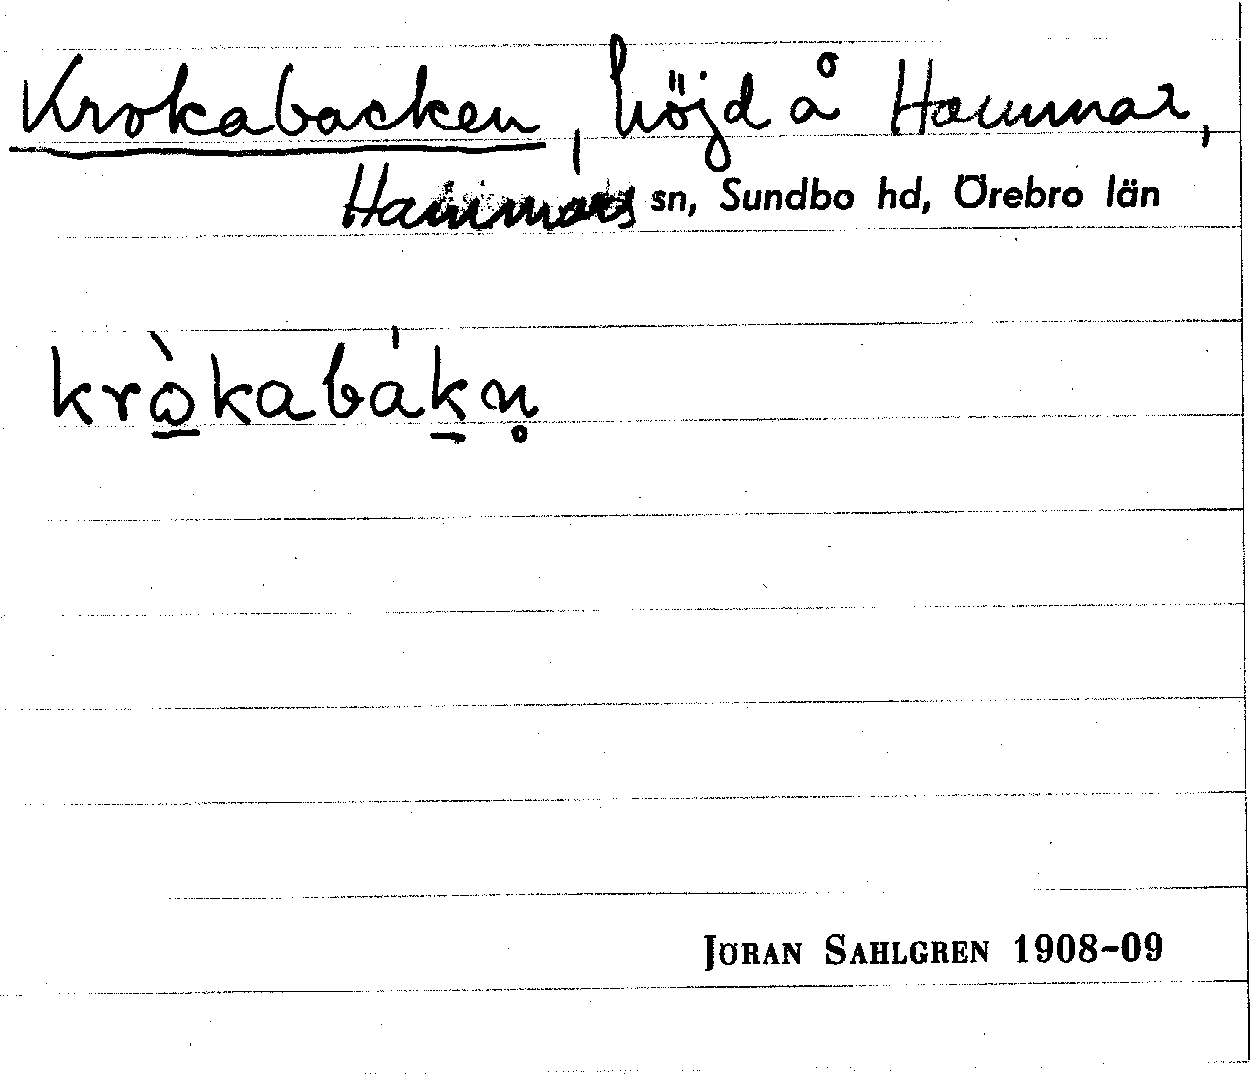 Krokabacken, höjd å Hammar,
Hammars sn, Sundbo hd, Örebro län
krὼ̲kabák̠n̥
JÖRAN SAHLGREN 1908-09